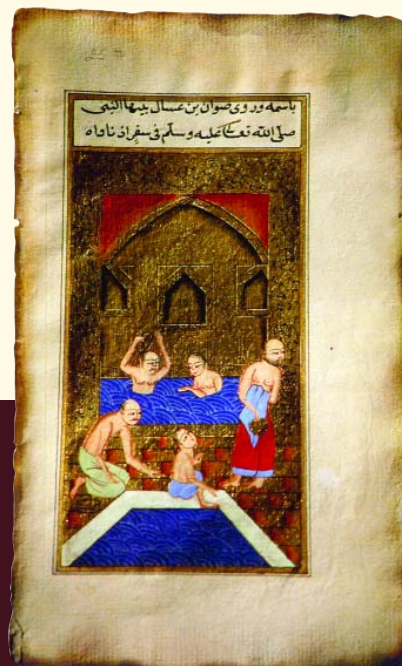 باسمه وروى صوان بن عسال بينما النبى
صلى الله تعا عليه وسلم فى سفر اذ ناداه